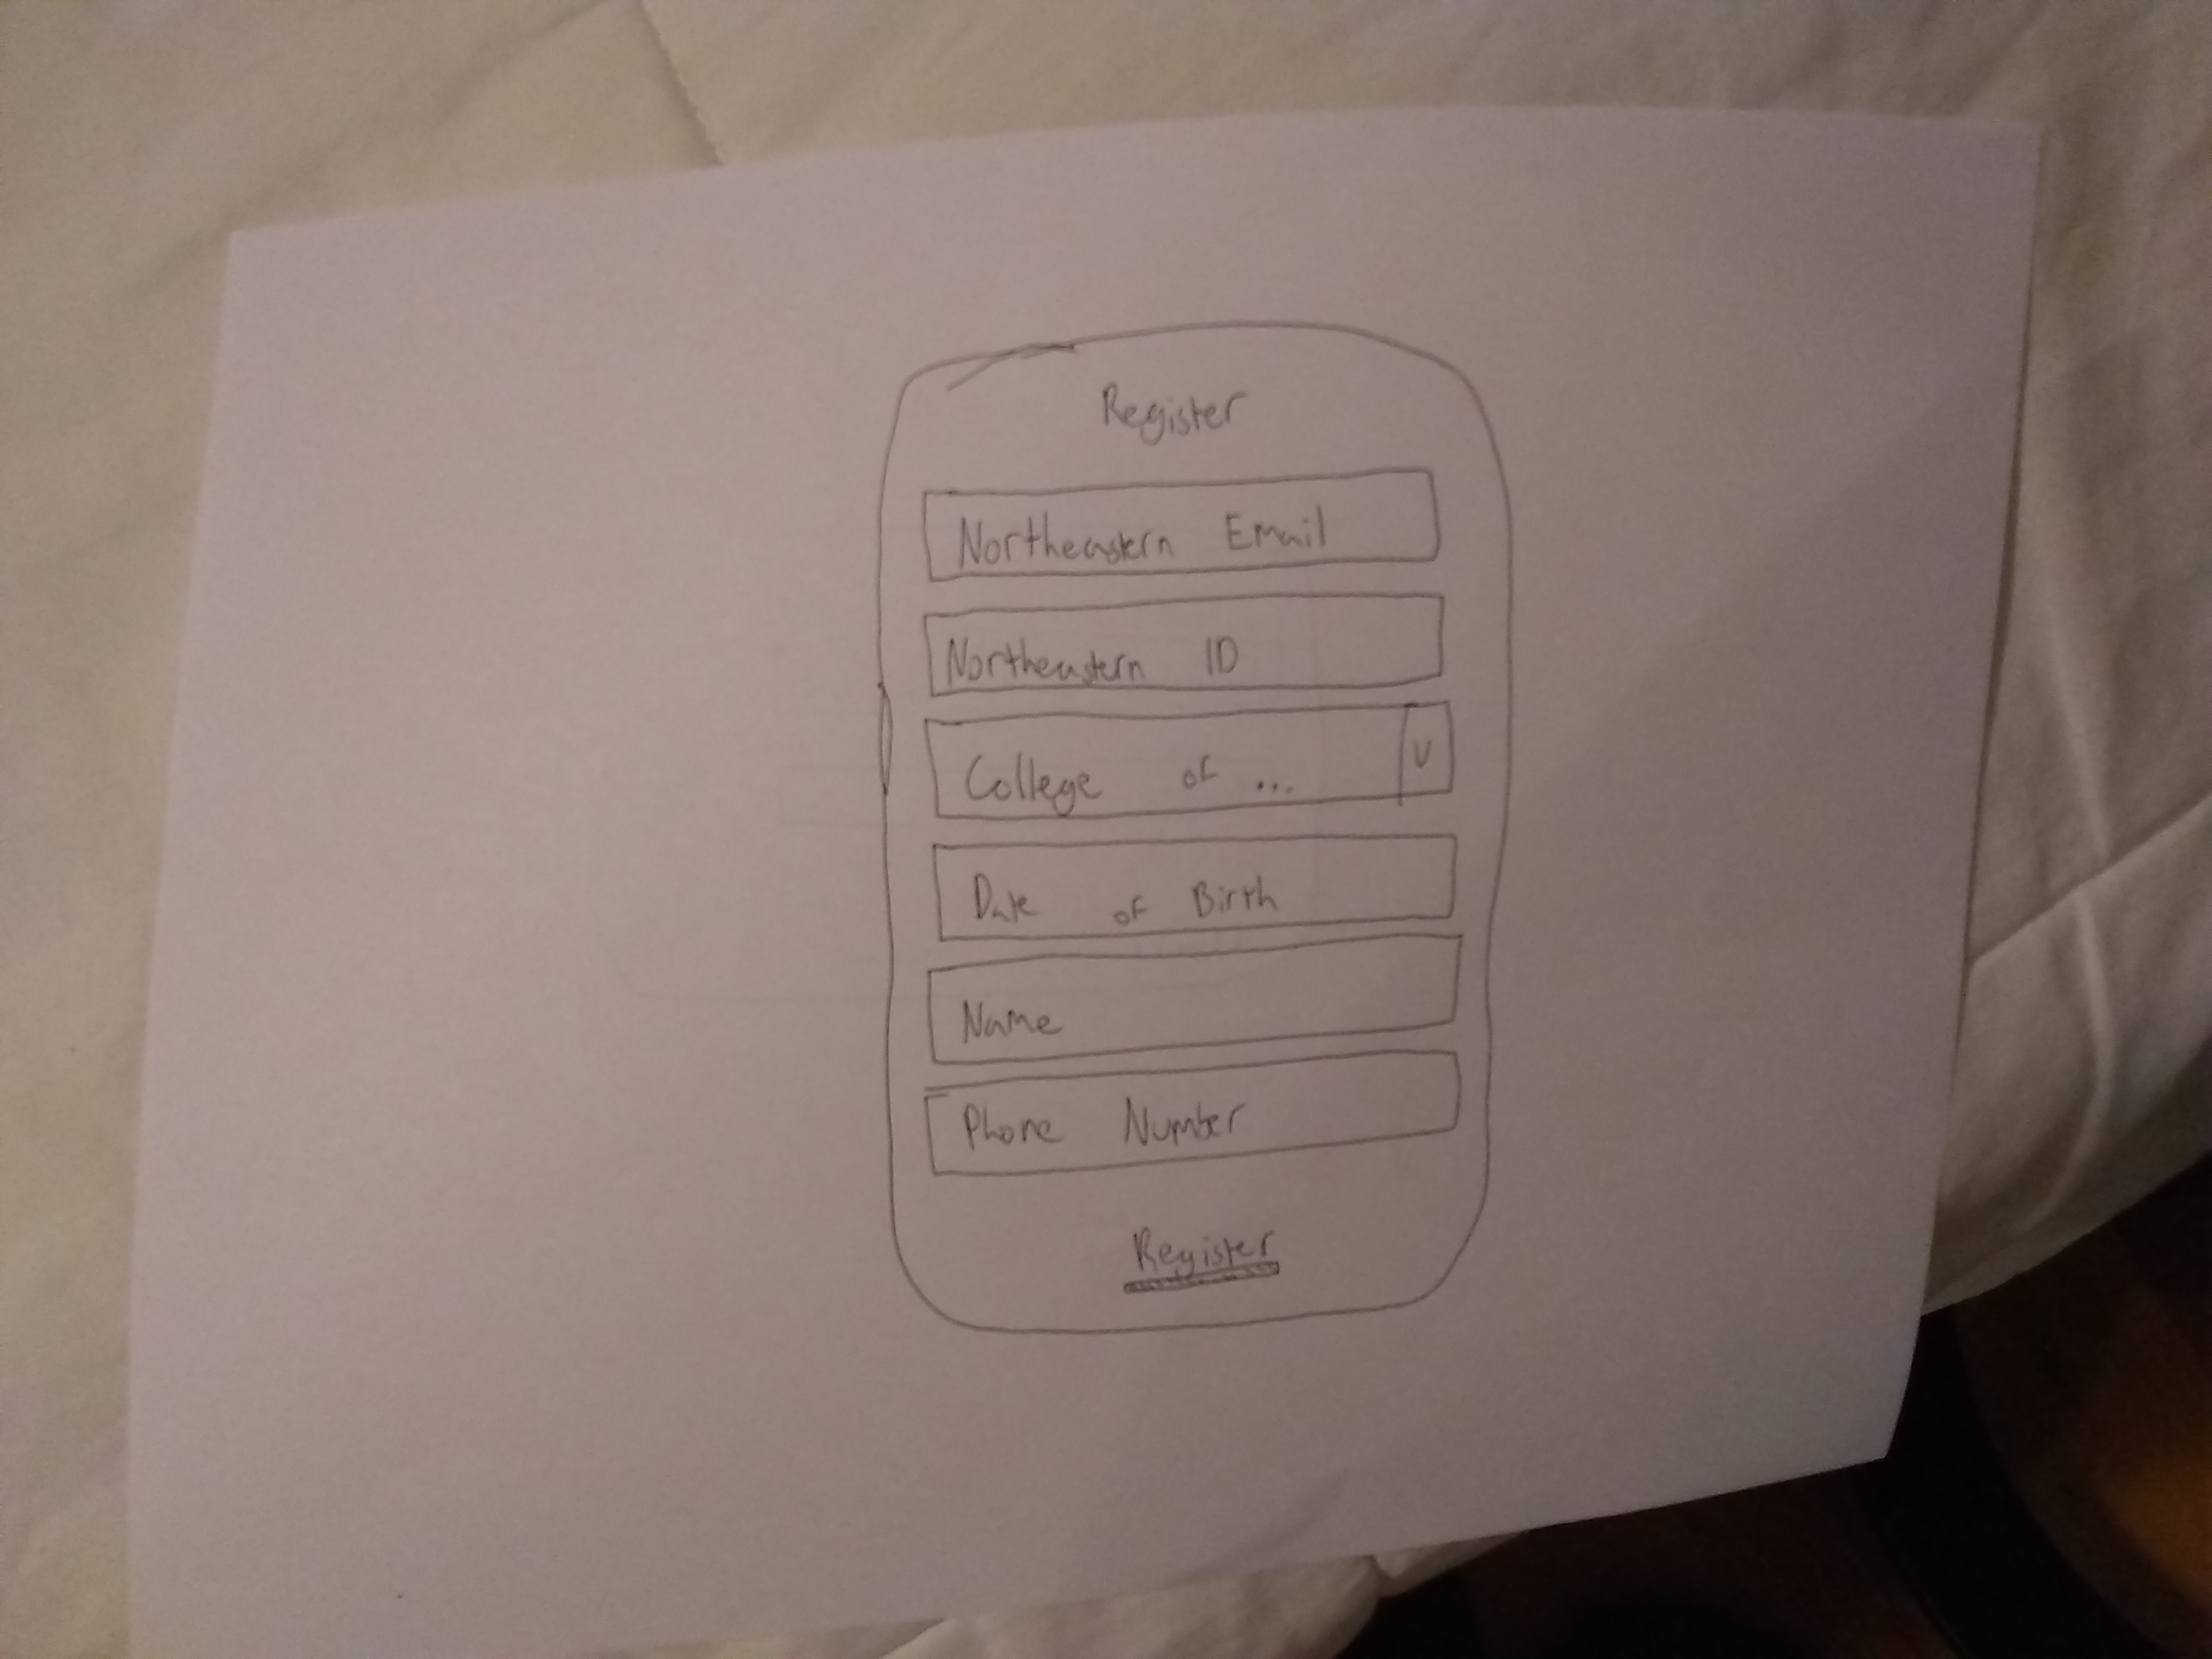 Register
Northeastern Email
Northeastern ID
College of ... V
Date of Birth
Name
Phone Number
Register